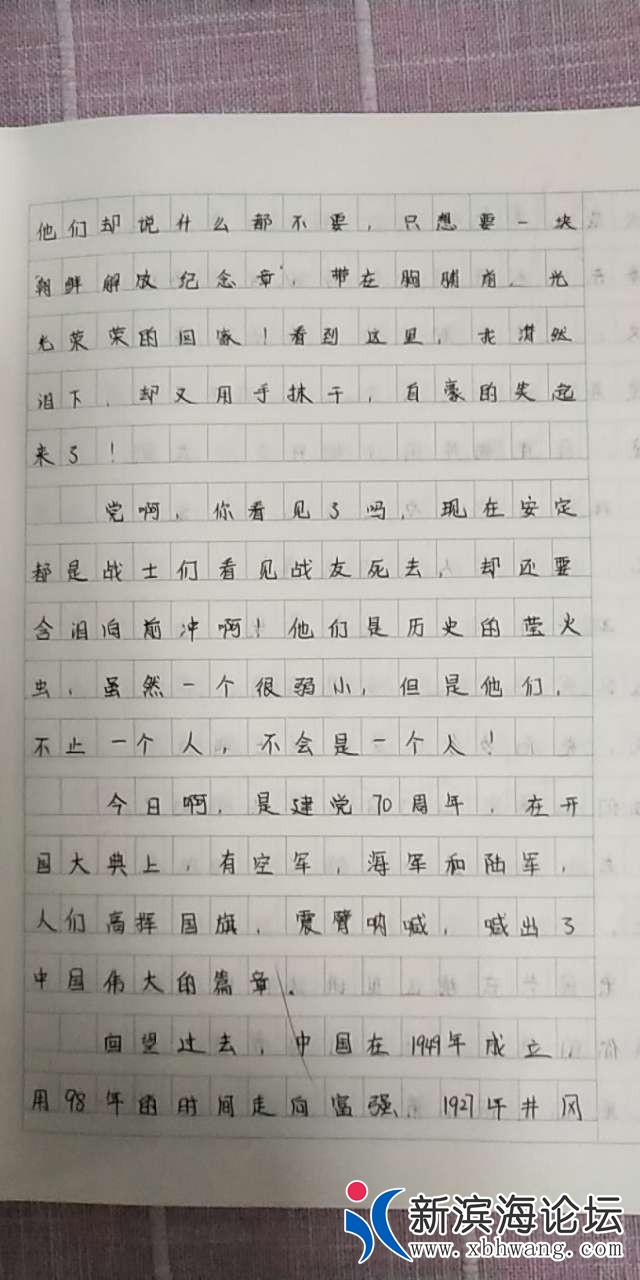 他们却说什么都不要，只想要一块
朝鲜解放纪念章，带在胸脯前、光
光荣荣的回家！看到这里，我潸然
泪下，却又用手抹干，自豪的笑起
来了！
党啊，你看见了吗，现在安定
都是战士们看见战友死去，却还要
含泪向前冲啊！他们是历史的萤火
虫，虽然一个很弱小，但是他们，
不止一个人，不会是一个人！
今日啊，是建党70周年，在开
国大典上，有空军，海军和陆军，
人们高挥国旗，震臂呐喊，喊出了
中国伟大的篇章、
回望过去，中国在1949年成立，
用98年的时间走向富强，1927年井冈
新滨海论坛
www.xbhwang.com